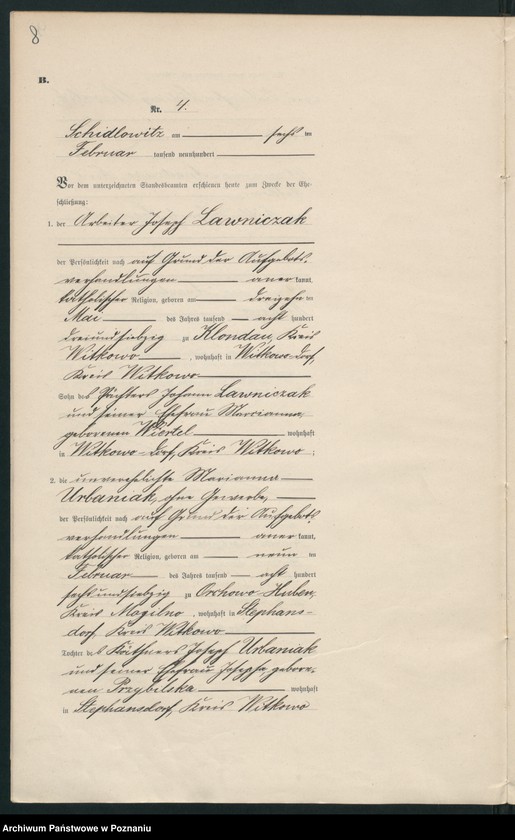 8
B.
Nr. 4.
Schidlowitz am sechsten
Februar tausend neunhundert
Vor dem unterzeichneten Standesbeamten erschienen heute zum Zwecke der Ehe-
schließung:
1. der Arbeiter Joseph Lawniczak
der Persönlichkeit nach auf Grund der Aufgebots-
verhandlungen anerkannt,
katholischer Religion, geboren am dreizehnten
Mai des Jahres tausend achthundert
dreiundsiebzig zu Klondau, Kreis
Witkowo, wohnhaft in Witkowo-Dorf
Kreis Witkowo
Sohn des Pächters Johann Lawniczak
und seiner Ehefrau Marcianna,
geborenen Wiertel wohnhaft
in Witkowo-Dorf, Kreis Witkowo;
2. die unverehelichte Marianna
Urbaniak, ohne Gewerbe,
der Persönlichkeit nach auf Grund der Aufgebots-
verhandlungen anerkannt,
katholischer Religion, geboren am neunten
Februar des Jahres tausend achthundert
sechsundsiebzig zu Orchowo-Huben,
Kreis Mogilno, wohnhaft in Stephans-
dorf, Kreis Witkowo
Tochter des Käthners Joseph Urbaniak
und seiner Ehefrau Josepha, gebore-
nen Przybelska wohnhaft
in Stephansdorf, Kreis Witkowo
Archiwum Państwowe w Poznaniu